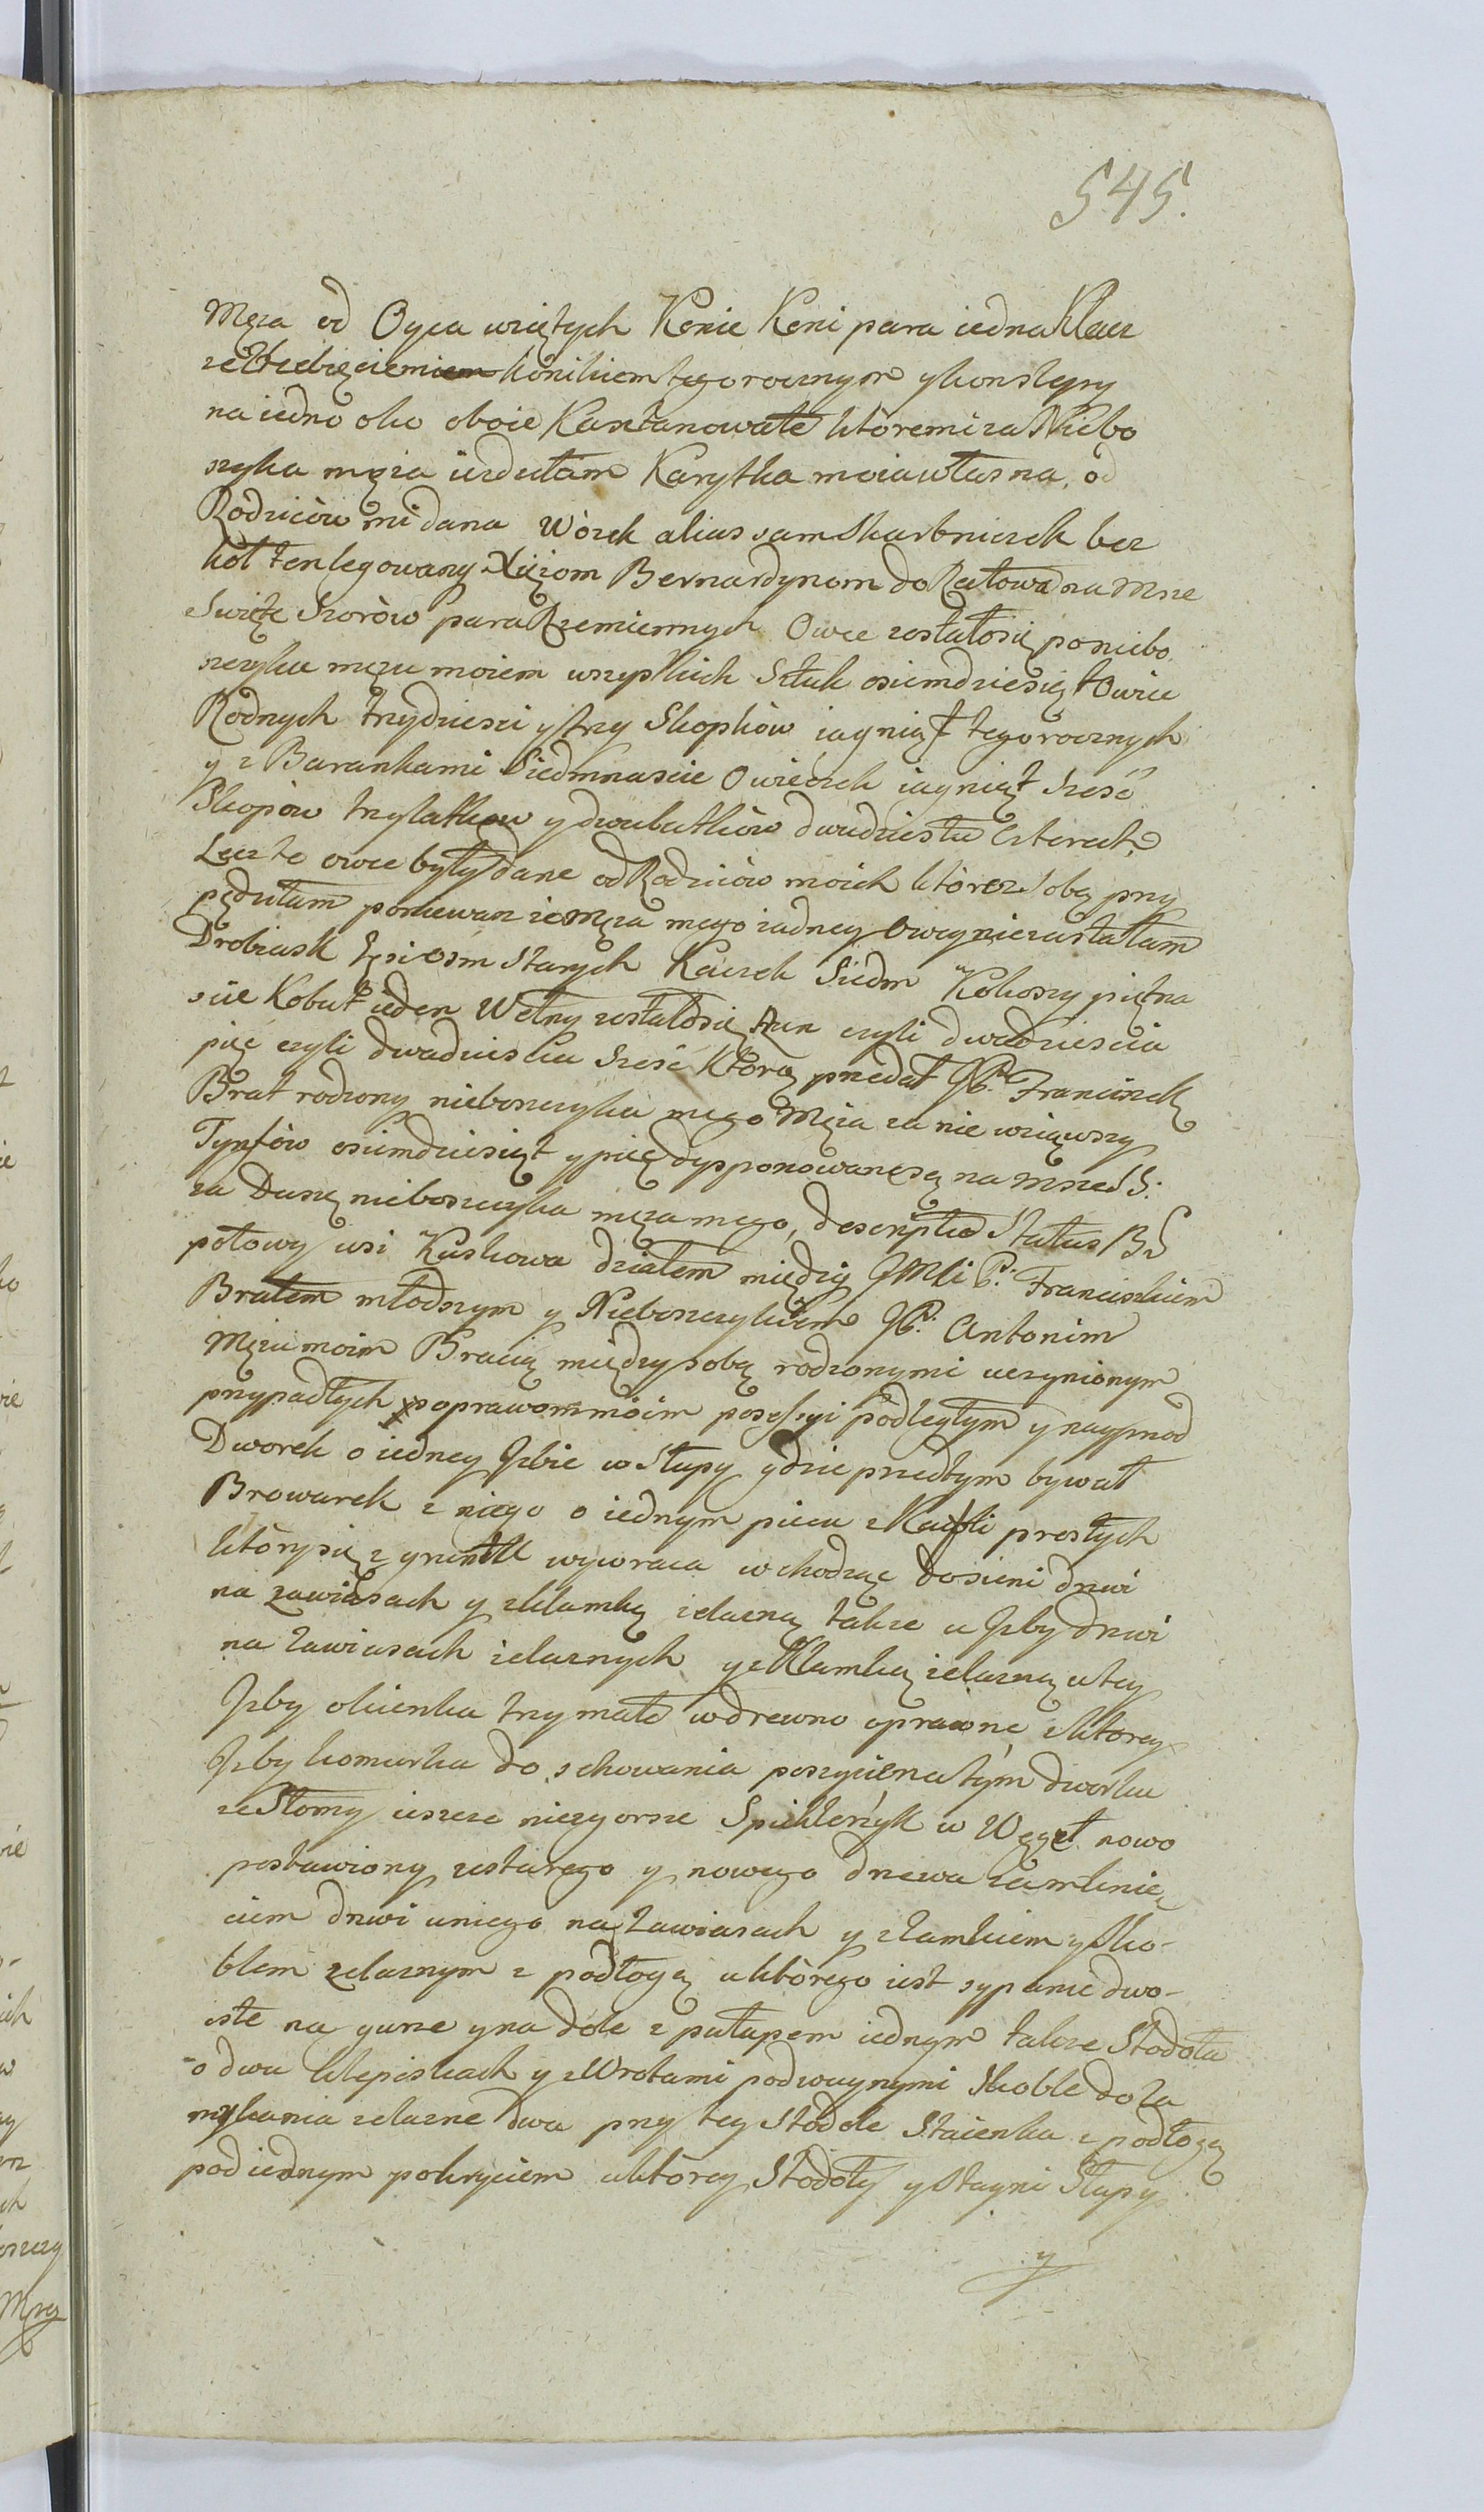 545.
Męza od Oyca wziętych Konie Koni para iedna Klacz
ze Zrebięciem konikiem tegorocznym y kon slepy
na iedno oko oboie Kasztanowate ktoremi za Niebo
szyka męza iezdziłam Karytka moia własna, od
Rodziców mi dana Wózek alias sam Skarbniczek bez
kół ten legowany Xiężom Bernardynom do Ratowa na Msze
Swięte Szorów para Rzemiennych Owce zostało się po niebo
szyku mężu moiem wszystkich Sztuk osiemdziesiąt Owiec
Rodnych trzydziesci y trzy Skopków iagniąt tegorocznych
y z Barankami Siedmnascie Owieczek iagniąt szesć
Skopów trzylatków y dwulatków dwudziestu czterech
Lecz te owce były dane od Rodziców moich ktore z sobą przy
pędziłam poniewaz ze Męza mego zadney owcy nie zastałam
Drobiazk Gęsi osm starych Kaczek Siedm Kokoszy piętna
scie Kobut ieden Wełny zostało się Run czyli dwadziescia
pięć czyli dwadziescia szesć ktorą przedał JP. Franciszek
Brat rodzony nieboszczyka mego Męza za nie wziąwszy
Tynfów osiemdziesiąt y pięć dysponowane są na Msze SS.
za Duszę nieboszczyka męza mego, descriptio Status BS
połowy wsi Kuskowa działem między JMCi P. Franciszkiem
Bratem młodszym y Nieboszczykiem JP. Antonim
Mężu moim Bracią między sobą rodzonymi uczynionym
przypadłych y oprawom moim possessyi podległym y nayprzod
Dworek o iedney Jzbie w Słupy gdzie przedtym bywał
Browarek z niego o iednym piecu z Kafli prostych
który się z gruntu wywraca wchodząc do sieni drzwi
na zawiasach y z klamką zelazną takze u Jzby drzwi
na Zawiasach zelaznych y z Klamką zelazną u tey
Jzby okienka trzy małe w drewno oprawne z ktorey
Jzby komurka do schowania poszycie na tym dworku
ze Słomy ieszcze niezgorsze Spichlerzyk w Węgeł nowo
postawiony z starego y nowego drzewa zamknię
ciem drzwi u niego na Zawiasach y z Zamkiem y sko-
blem zelaznym z podłogą u którego iest sypanie dwo-
iste na gurze y na dole z pułapem iednym takze Stodoła
o dwu klepiskach y z Wrotami podwuynymi Skoble do za
mykania zelazne dwa przy tey stodole Staienka z podłogą
pod iednym pokryciem u ktorey Stodoły y Stayni Słupy
y